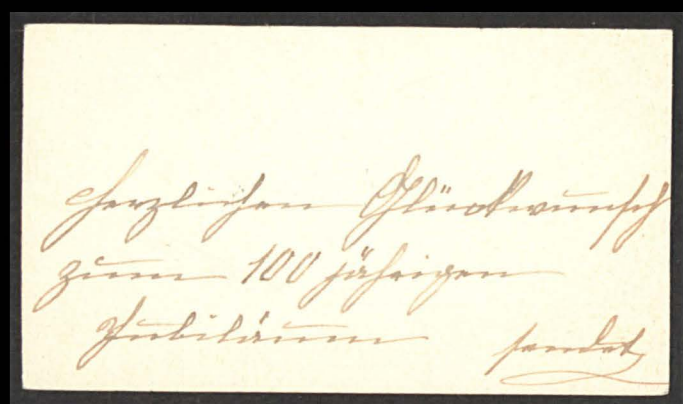 Herzlichen Glückwunsch
zum 100 jährigen
Jubiläum sendet